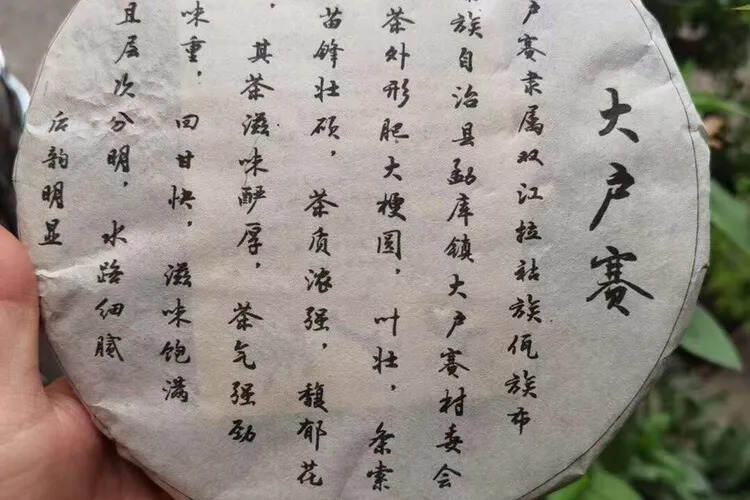 大户赛
户赛隶属双江拉祜族佤族布
族自治县勐库镇大户赛村委会
茶外形肥大梗圆，叶壮，条索
苗锋壮硕，茶质浓强，馥郁花
，其茶滋味酽厚，茶气强劲
味重，回甘快，滋味饱满
且层次分明，水路细腻
后韵明显